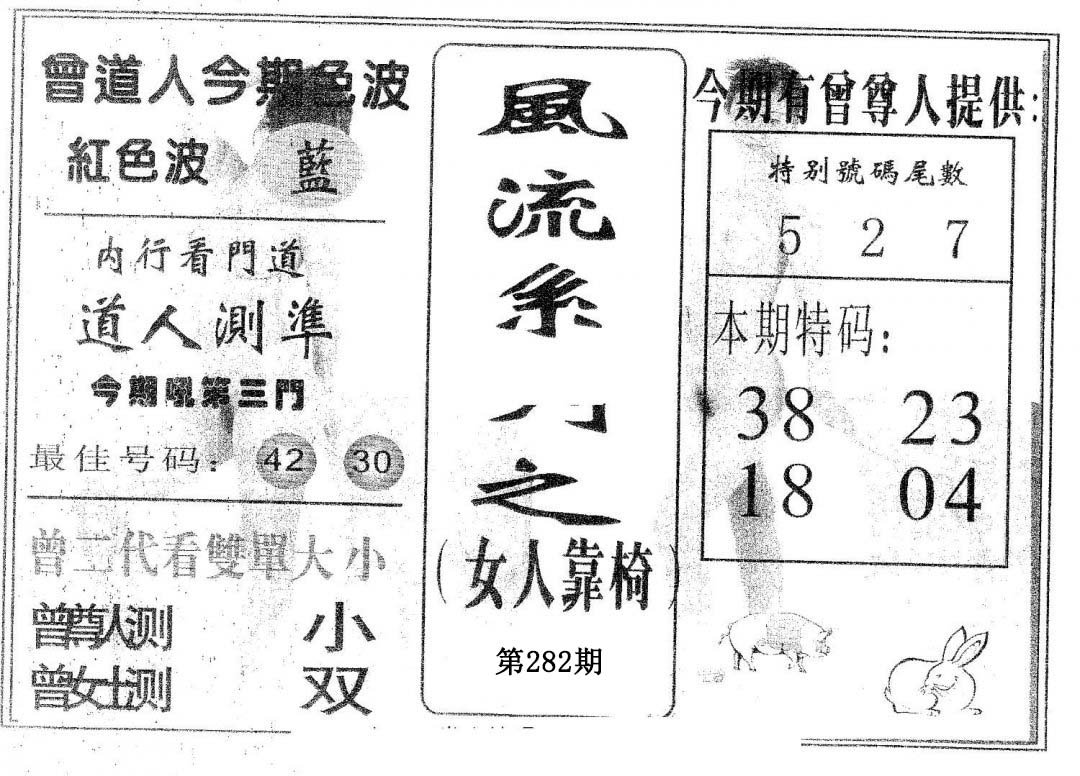 曾道人今期色波
紅色波 藍
内行看門道
道人測準
今期吼第三門
最佳号码： 42 30
曾二代看雙單大小
曾尊人测 小
曾女士测 双
風流系
之
（女人靠椅）
第282期
今期有曾尊人提供：
特别號碼尾數
5 2 7
本期特码：
38 23
18 04